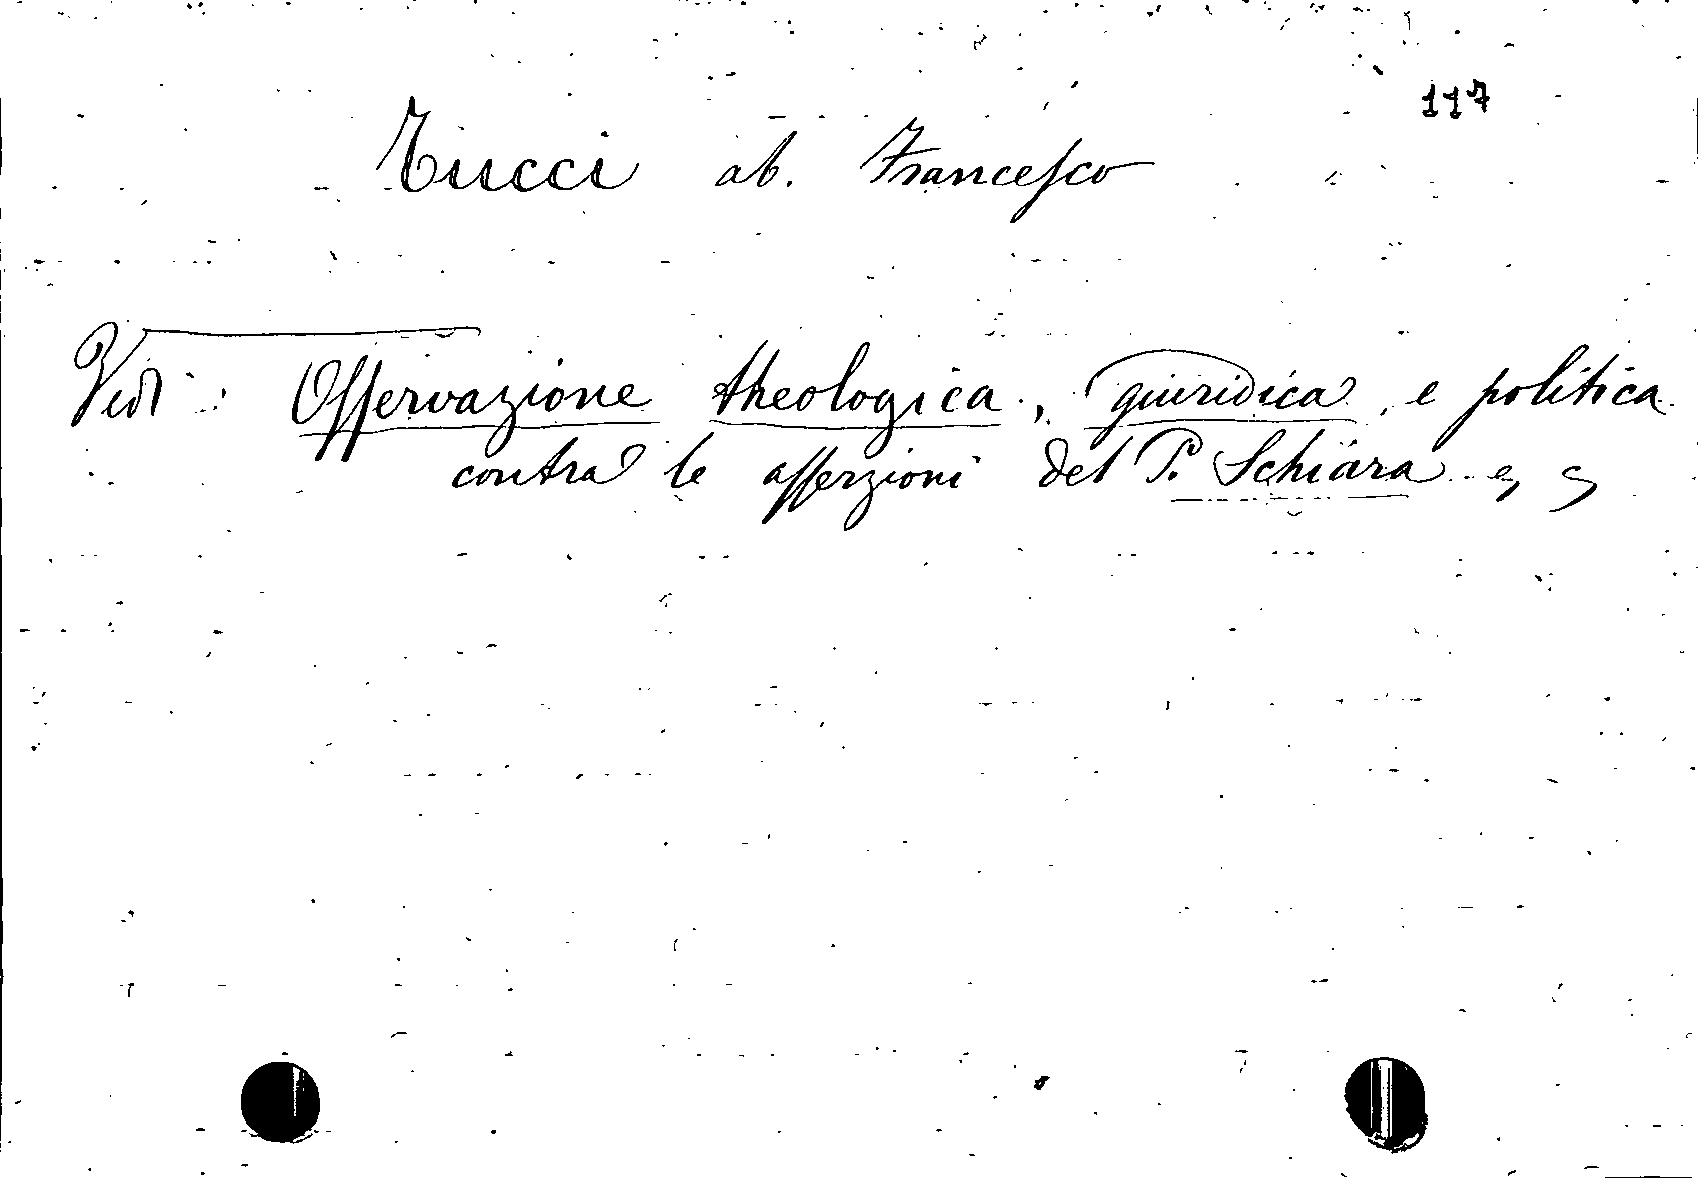 117
Tucci ab. Francesco
Vedi: Osservazione theologica, giuridica, e politica
contra le asserzioni del P. Schiara e,